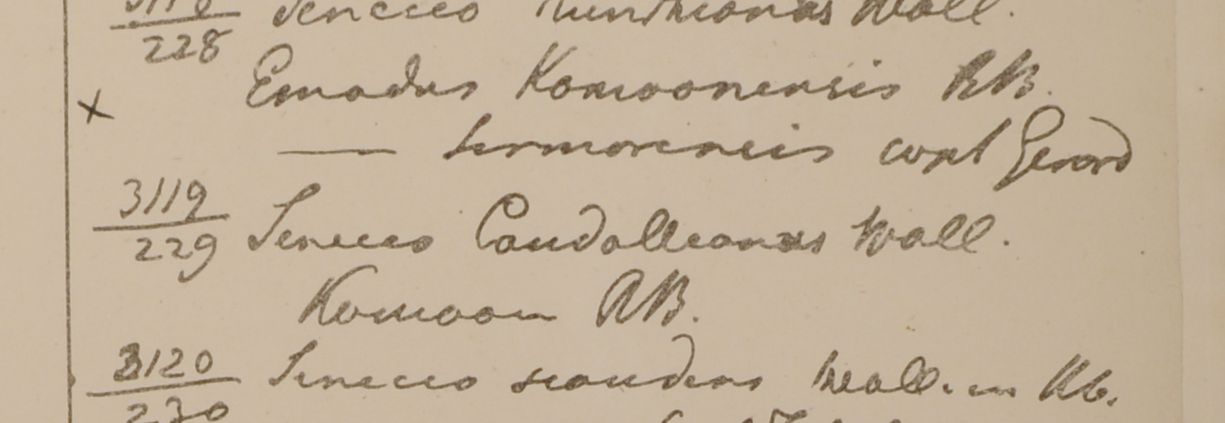 3118 Senecio Kunthianus Wall.
228
Emodus Komoonensis RB.
x
— Sirmorensis capt Gerard
3119
229 Senecio Candolleanus Wall.
Komoon RB.
3120 Senecio scandens Wall. in Hb.
230